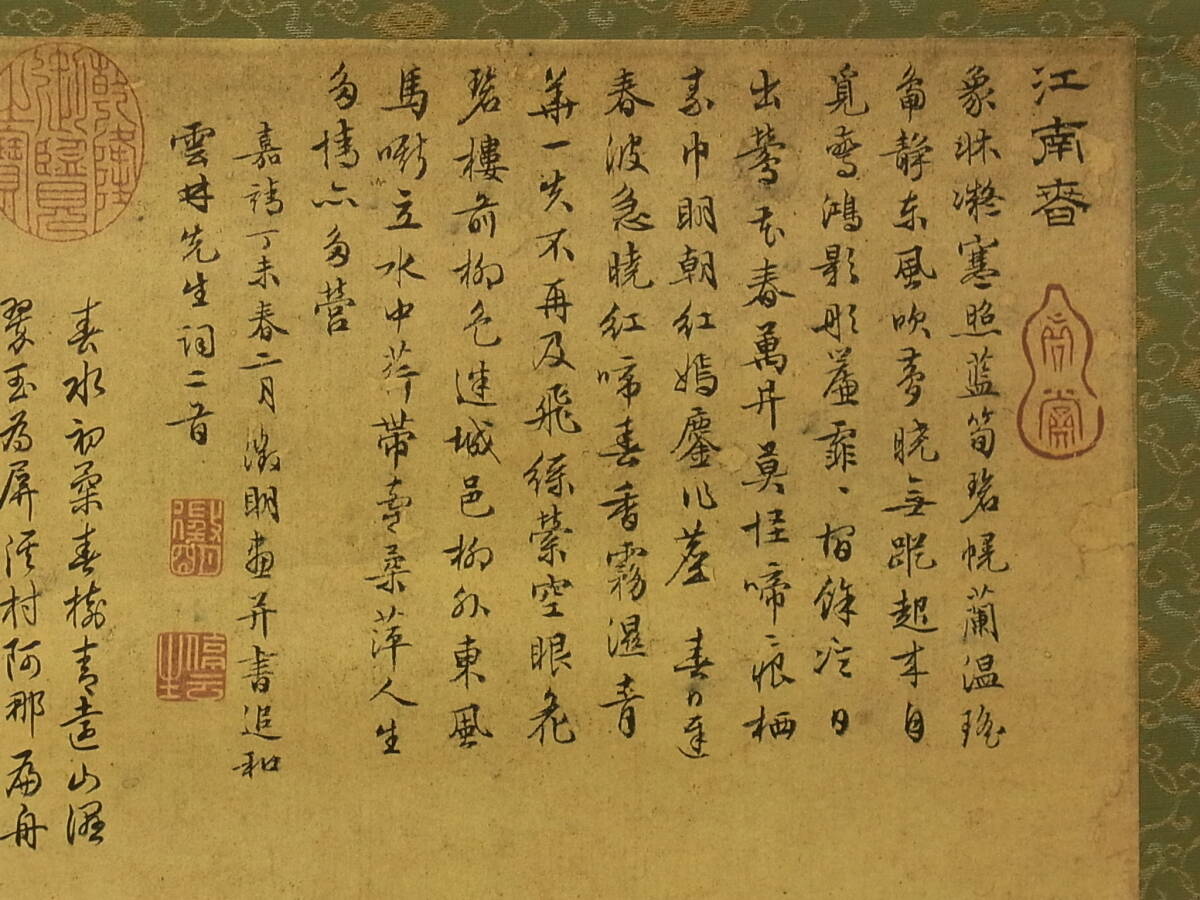 江南春
象牀凝寒照藍筍碧幌蘭温瑤
鴨靜東風吹夢曉無蹤起來自
覓驚鴻影彤簾霏〻宿餘冷日
出鶯花春萬井莫怪啼〻痕栖
素巾明朝紅嫣鏖作塵 春日遲
春波急曉紅啼春香霧濕青
華一失不再及飛絲縈空眼花
碧樓前柳色迷城邑柳外東風
馬嘶立水中荇帶牽柔萍人生
多情亦多營
嘉靖丁未春二月徵明畫并書追和
雲林先生詞二首
徵明
乾隆御覽之寶
春水初春樹青遠山濕
翠玉為屏溪村阿那扁舟